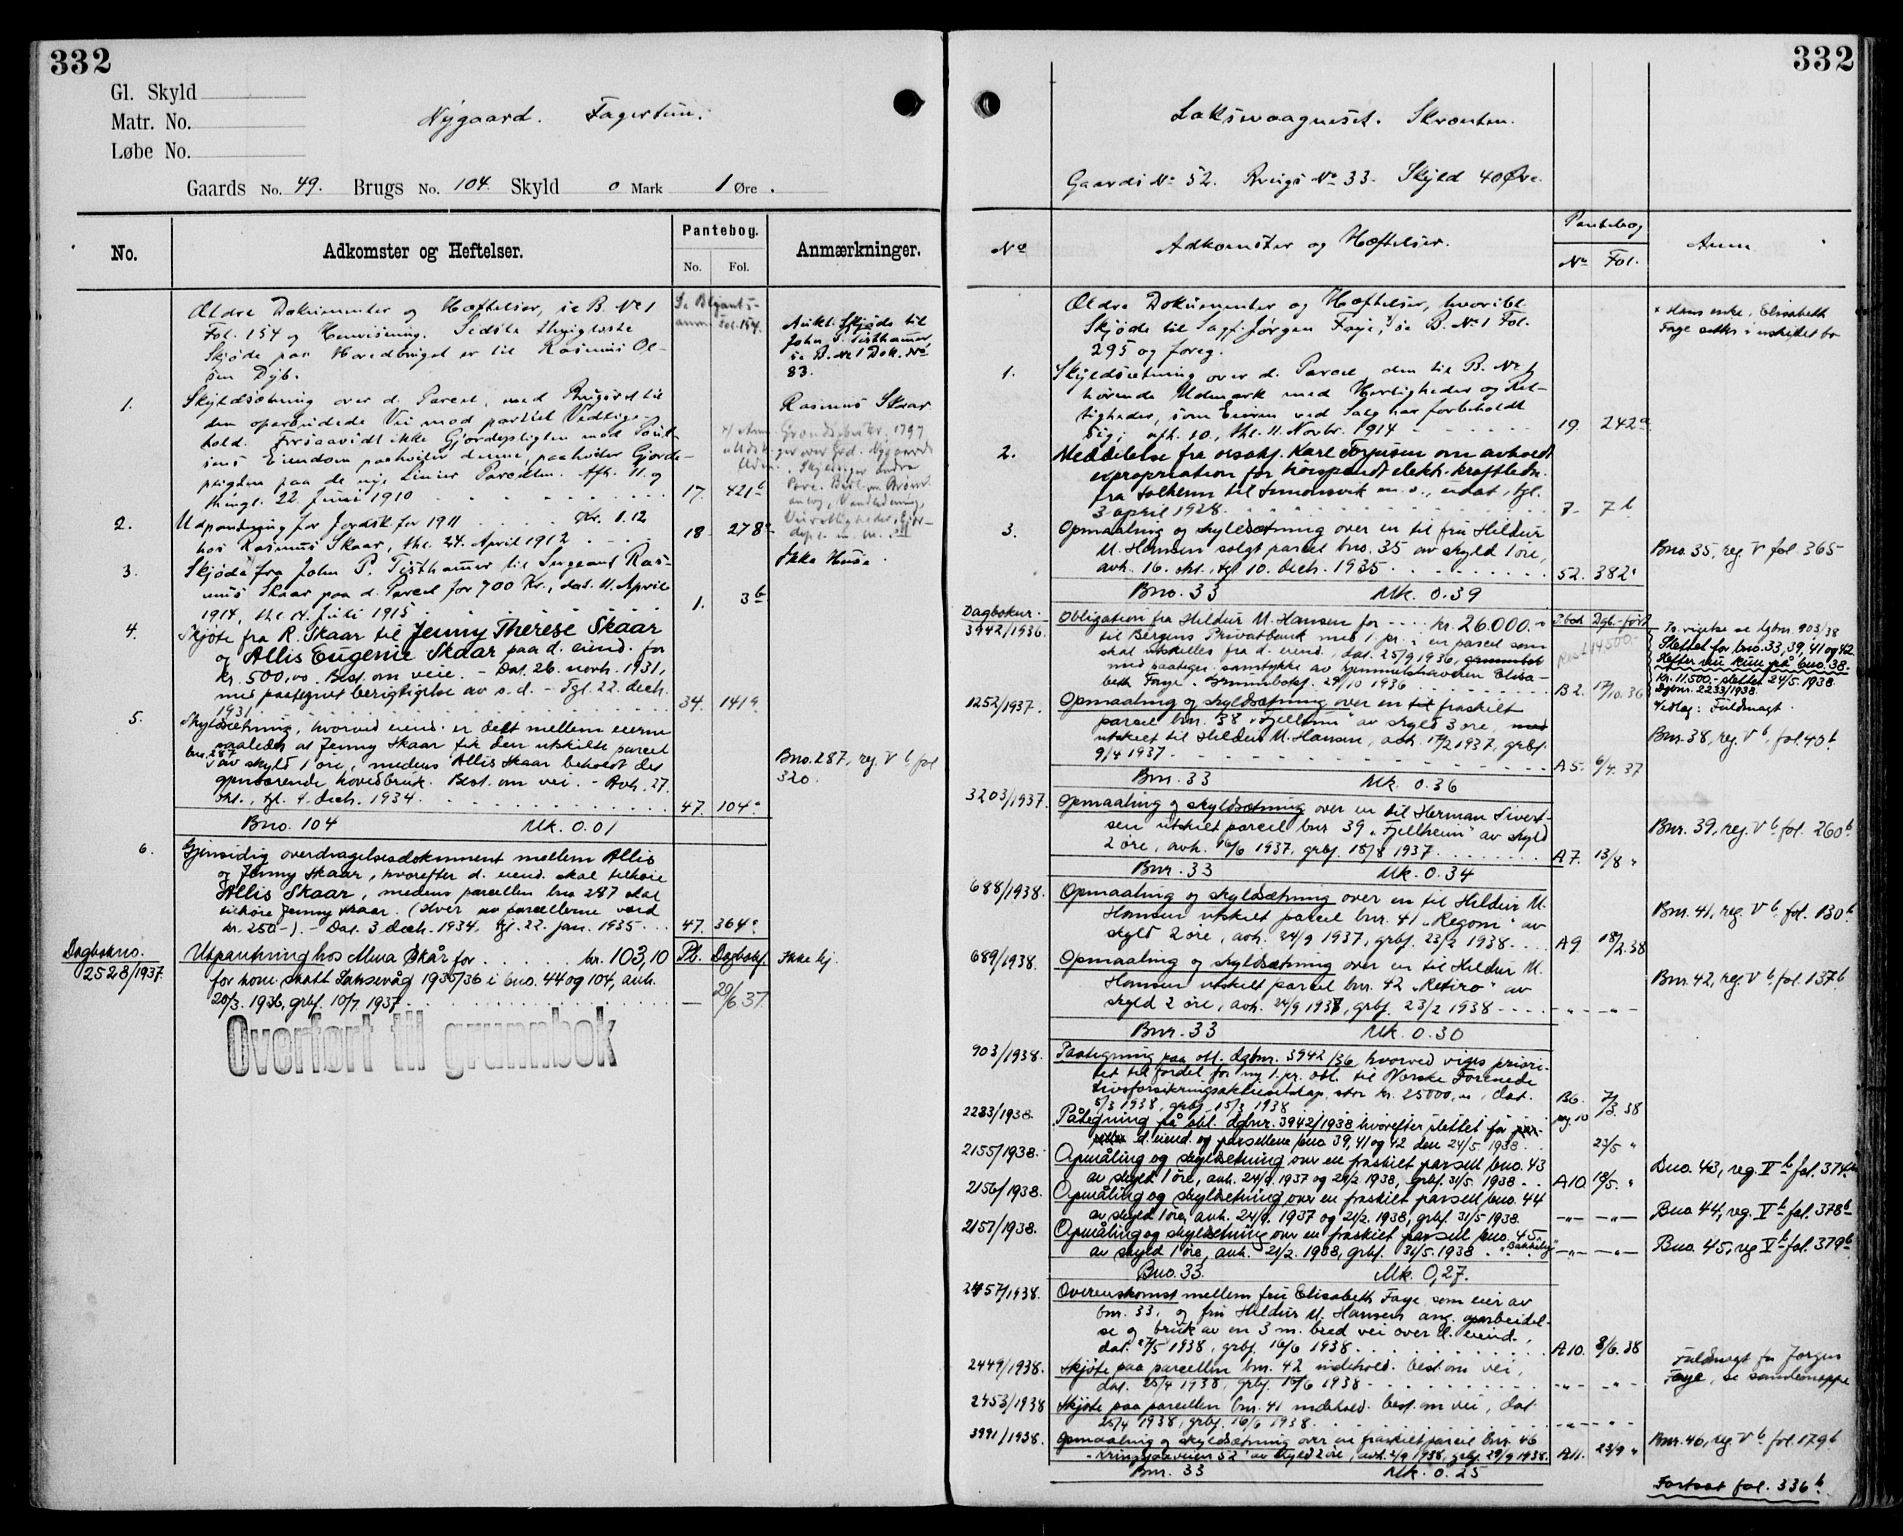 332
Gl. Skyld
Matr. No.
Løbe No.
Nygaard. Fagertun.
Gaards No. 49. Brugs No. 104. Skyld 0 Mark 1 Øre.
No.
Adkomster og Heftelser.
Pantebog.
No. Fol.
Anmærkninger.
Ældre Dokumenter og Hæftelser, se B. No 1
Fol. 154 og Henvisning. Sidste thinglæste
Skjøde paa Hovedbruget er til Rasmus Ol-
sen Dyb.
Se Blyants-
anm. Fol. 154.
Aukt. Skjøde til
John P. Tisthamer,
se B. No 1 Dok. No
83.
1. Skyldsætning over d. Parcel, med Brugsret til
den oparbeidede Vei mod partiel Vedlige-
hold. Forsaavidt ikke Gjærdepligten mod Poul-
sens Eiendom paahviler denne, paahviler Gjærde-
pligten paa de nye Linier Parcellen. Afh. 11. og
thingl. 22 Juni 1910 17. 421b
Rasmus Skaar
2. Udpantning for Jordsk. for 1911 Kr. 1.12
hos Rasmus Skaar, thl. 24. April 1912 18 278a
Ikke Huse.
3. Skjøde fra John P. Tisthamer til Sergeant Ras-
mus Skaar paa d. Parcel for 700 Kr., dat. 11. April
1914, thl. 14. Juli 1915 1. 3b
4. Skjøte fra R. Skaar til Jenny Therese Skaar
og Allis Eugenie Skaar paa d. eiend. for
kr. 500,00. Best. om veie. - Dat. 26. novb. 1931,
med paategnet berigtigelse av s.d. - Tgl. 22. decb.
1931 34. 141a
5. Skyldsætning, hvorved eiend. er delt mellem eierne
saaledes at Jenny Skaar fik den utskilte parcel
bno. 287
av skyld 1 øre, medens Allis Skaar beholdt det
gjenværende hovedbruk. Best. om vei. - Avh. 27.
okt., tgl. 4. decb. 1934. 47. 104a
Bno. 287, reg. V b fol
320.
Bno. 104 Mk. 0.01
6. Gjensidig overdragelsesdokument mellem Allis
og Jenny Skaar, hvorefter d. eiend. skal tilhøre
Allis Skaar, medens parcellen bno 287 skal
tilhøre Jenny Skaar. (Hver av parcellerne værd
kr. 250-). - Dat. 3 decb. 1934, tgl. 22. jan. 1935 47. 364a
Dagbokno.
2528/1937.
Utpantning hos Mina Skår for kr. 103,10 Pb. Dagbokf. Ikke hj.
for kom. skatt Laksevåg 1935/36 i bno. 44 og 104, avh.
20/3. 1936, grbf. 10/7 1937 — 29/6 37.
Overført til grunnbok
332
Laksevaagneset. Skrænten.
Gaards No 52. Brugs No 33. Skyld 40 Øre.
No
Adkomster og Hæftelser.
Pantebog
No Fol.
Anm.
Ældre Dokumenter og Hæftelser, hvoribl.
Skjøde til Sagf. Jørgen Faye,x se B. No 1 Fol.
295 og foreg.
x Hans enke, Elisabeth
Faye sitter i uskiftet bo
1. Skyldsætning over d. Parcel, den til B. No 1
hørende Udmark med Herligheder og ret-
tigheder, som Eieren ved Salg har forbeholdt
sig; afh. 10., thl. 11. Novbr. 1914 19. 242a
2. Meddelelse fra orsakf. Karl Torjusen om avholdt
expropriation for høispændt elektr. kraftledn.
fra Solheim til Simonsvik m.v., udat., tgl.
3 april 1928. 7. 7b
3. Opmaaling og skyldsætning over en til fru Hildur
M. Hansen solgt parcel bno. 35 av skyld 1 øre,
avh. 16. okt., tgl 10. decb. 1935 52. 382a
Bno. 35, reg. V fol. 365
Bno. 33 Mk. 0.39
Dagboknr.
3942/1936.
Obligation fra Hildur M. Hansen for kr. 26.000.-
til Bergens Privatbank med 1. pr. i en parcel som
skal utskilles fra d. eiend., dat. 25/9 1936,
med paategn. samtykke av hjemmelshaveren Elisa-
beth Faye. Grunnbokf. 29/10 1936 B2. 17/10. 36
To vigelse se dgbnr. 903/38
Slettet for bno. 33, 39, 41 og 42.
Hefter nu kun på bno. 38.
Kr. 11.500.- slettet 24/5 1938
Dgbnr. 2233/1938.
Vedlag: Fuldmagt.
1252/1937. Opmaaling og skyldsætning over en fraskilt
parcel bnr. 38 "Fjellemi" av skyld 3 øre,
utskilt til Hildur M. Hansen, avh. 17/2 1937, grbf.
9/4 1937 A5. 6/4. 37
Bnr. 38, reg. V b, fol. 40b
Bnr. 33 Mk. 0.36
3203/1937. Opmaaling og skyldsætning over en til Herman Sivert-
sen utskilt parcel bnr 39 "Fjellheim" av skyld
2 øre, avh. 16/6 1937, grbf. 18/8 1937 A7. 13/8 "
Bnr. 39, reg. V b. fol. 260b
Bnr. 33 Mk. 0.34
688/1938. Opmaaling og skyldsætning over en til Hildur M.
Hansen utskilt parcel bnr. 41 "Regoni" av
skyld 2 øre, avh. 24/9 1937, grbf. 23/2 1938 A9 18/2. 38
Bnr. 41, reg. V b. fol. 130b
689/1938. Opmaaling og skyldsætning over en til Hildur M.
Hansen utskilt parcel bnr. 42 "Retiro" av
skyld 2 øre, avh. 24/9 1937, grbf. 23/2 1938 -"- -"-
Bnr. 42, reg. V b. fol. 137b
Bnr. 33 Mk. 0.30
903/1938. Paategning paa obl. dgbnr. 3942/36 hvorved viges priori-
tet til fordel for ny 1. pr. obl. til Norske Forenede
Livsforsikringsaktieselskap, stor kr. 25000,00, dat.
5/3 1938, grbf. 15/3 1938 B6. 7/3. 38
2233/1938. Påtegning på obl. dgbnr. 3942/1938 hvorefter slettet for
d. eiend. og parsellene bno 39, 41 og 42 den 24/5 1938 23/5 "
2155/1938. Opmåling og skyldsetning over en fraskilt parsell bno. 43
av skyld 1 øre, avh. 24/9. 1937 og 21/2 1938, grbf. 31/5 1938 A10 18/5. "
Bno. 43, reg. V b fol. 374b
2156/1938. Opmåling og skyldsetning over en fraskilt parsell bno. 44
av skyld 1 øre, avh. 24/9. 1937 og 21/2. 1938, grbf. 31/5 1938. -"- -"-
Bno 44, reg. V b fol. 378b
2157/1938. Opmåling og skyldsetning over en fraskilt parsell bno. 45
av skyld 1 øre, avh. 21/2. 1938, grbf. 31/5. 1938 -"- -"-
Bno. 45, reg V b fol. 379b
Bno. 33. Mk. 0,27.
2457/1938. Overenskomst mellem fru Elisabeth Faye som eier av
bnr. 33, og fru Hildur M. Hansen ang. oparbeidel-
se og bruk av en 3 m. bred vei over d. eiend.,
dat. 27/5 1938, grbf. 16/6 1938 A10. 8/6. 38
2449/1938. Skjøte paa parcellen bnr. 42 indehold. best. om vei,
dat. 25/4 1938, grbf. 16/6 1938 -"- -"-
Fuldmagt for Jørgen
Faye, se samlemappe
2453/1938 Skjøte paa parcellen bnr. 41 indehold. best. om vei, dat
25/4 1938, grbf. 16/6 1938. -"- -"-
3991/1938. Opmaaling og skyldsætning over en fraskilt parcel bnr. 46
"Kringsjaaveien 52" av skyld 2 øre, avh. 2/9 1938, grbf. 29/9 1938. A11. 23/9 "
Bnr. 46, reg. V b fol. 179b
Bnr. 33 Mk. 0.25
Fortsat fol. 336b.